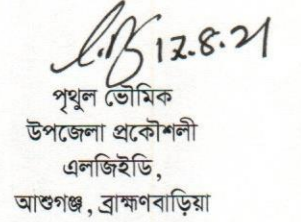 17.8.21
পৃথুল ভৌমিক
উপজেলা প্রকৌশলী
এলজিইডি,
আশুগঞ্জ, ব্রাহ্মণবাড়িয়া